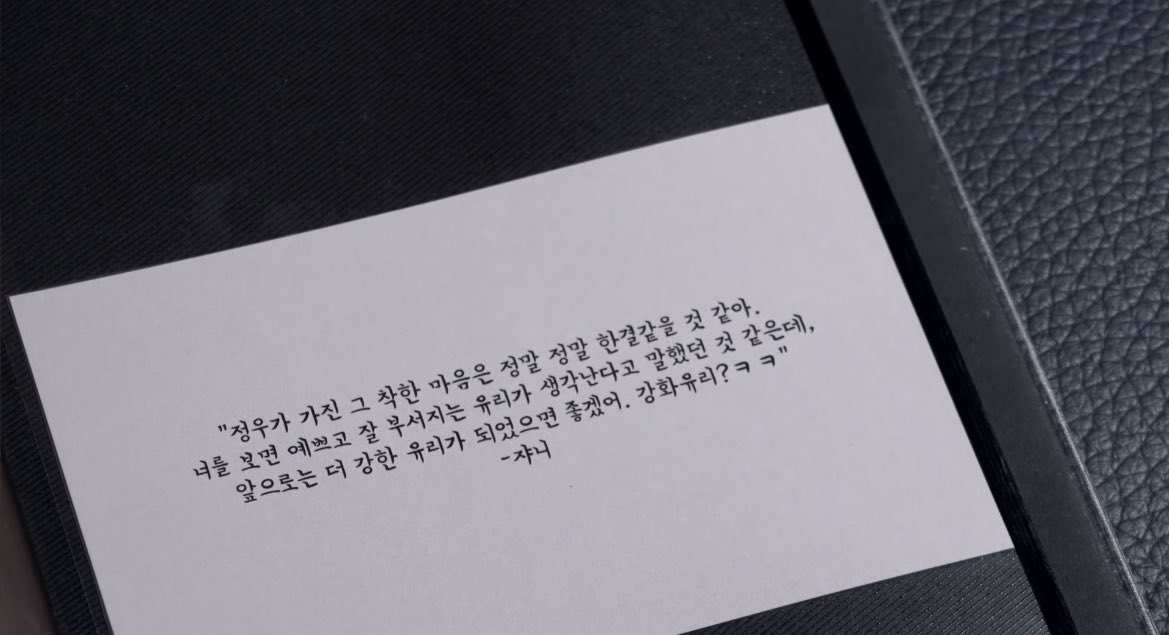 "정우가 가진 그 착한 마음은 정말 정말 한결같을 것 같아.
너를 보면 예쁘고 잘 부서지는 유리가 생각난다고 말했던 것 같은데,
앞으로는 더 강한 유리가 되었으면 좋겠어. 강화유리?ㅋㅋ"
-쟈니